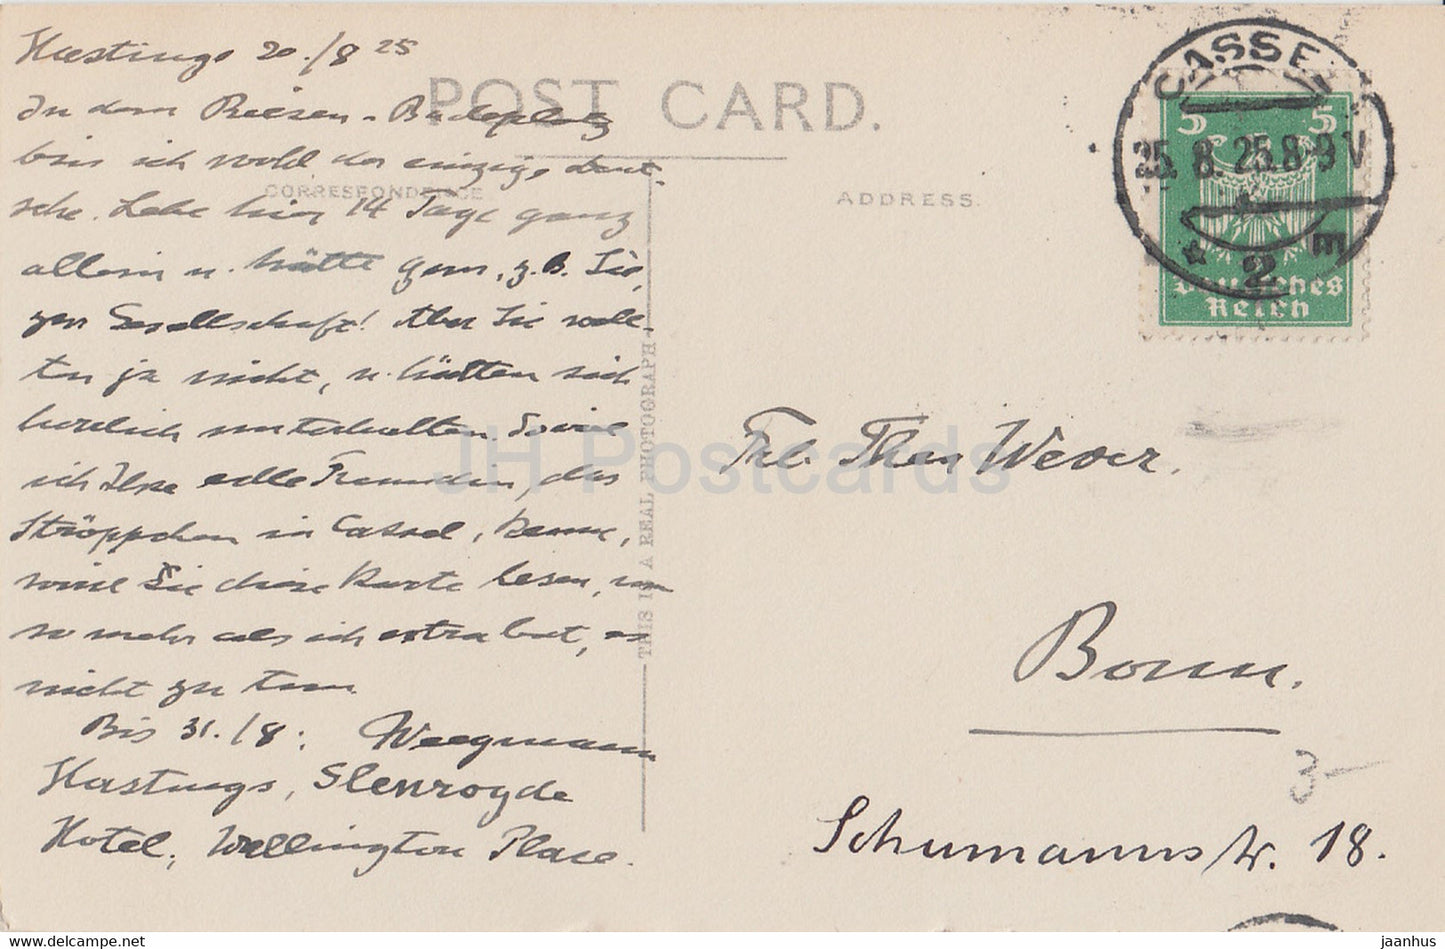 Hastings 20./8 25
In dem Riesen-Badeplatz
bin ich wohl der einzige deut-
sche. Lebe hier 14 Tage ganz
allein u. hätte gern, z.B. Sie,
zur Gesellschaft! Aber Sie woll-
ten ja nicht, u. hätten sich
herzlich unterhalten. Sowie
ich Ihre edle Freundin, das
Ströppchen in Cassel, kenne,
wird Sie diese Karte lesen, um
so mehr als ich extra bat, es
nicht zu tun
Bis 31./8: Weegmann
Hastings, Glenroyde
Hotel, Wellington Place.
POST CARD.
CORRESPONDENCE
ADDRESS.
THIS IS A REAL PHOTOGRAPH
CASSEL
25. 8. 25. 8-9 V
* 2 E
5 5
Deutsches
Reich
Frl. Thea Wever.
Bonn.
3-
Schumannstr. 18.
JH Postcards
jaanhus — https://www.jaanhus.com